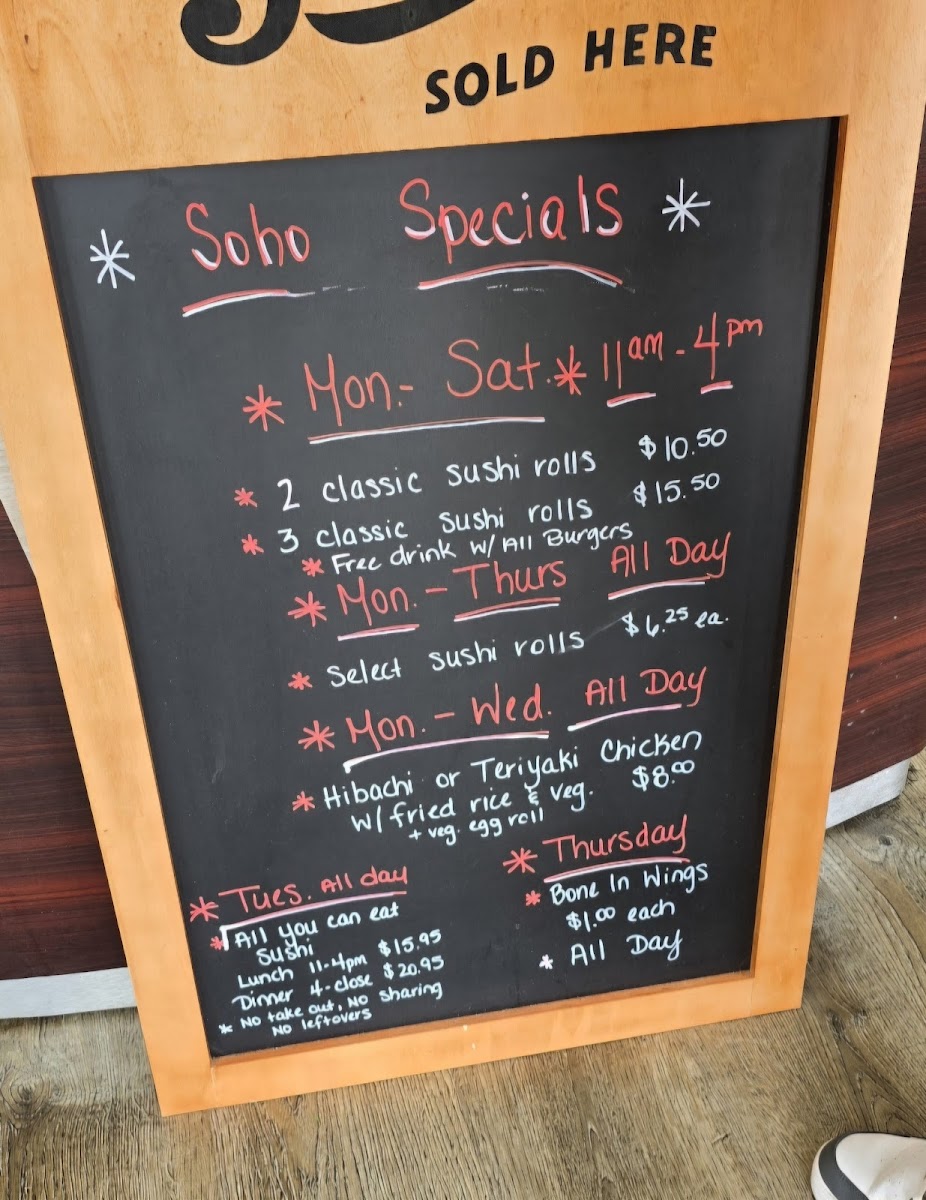 SOLD HERE
* Soho Specials *
* Mon.- Sat. * 11am - 4pm
* 2 classic sushi rolls $10.50
* 3 classic sushi rolls $15.50
* Free drink w/ All Burgers
* Mon. - Thurs All Day
* Select sushi rolls $6.25 ea.
* Mon. - Wed. All Day
* Hibachi or Teriyaki Chicken
w/ fried rice & veg. $8.00
+ veg. egg roll
* Tues. All day
* All you can eat
sushi
Lunch 11-4pm $15.95
Dinner 4-close $20.95
* No take out, No sharing
No leftovers
* Thursday
* Bone In Wings
$1.00 each
* All Day